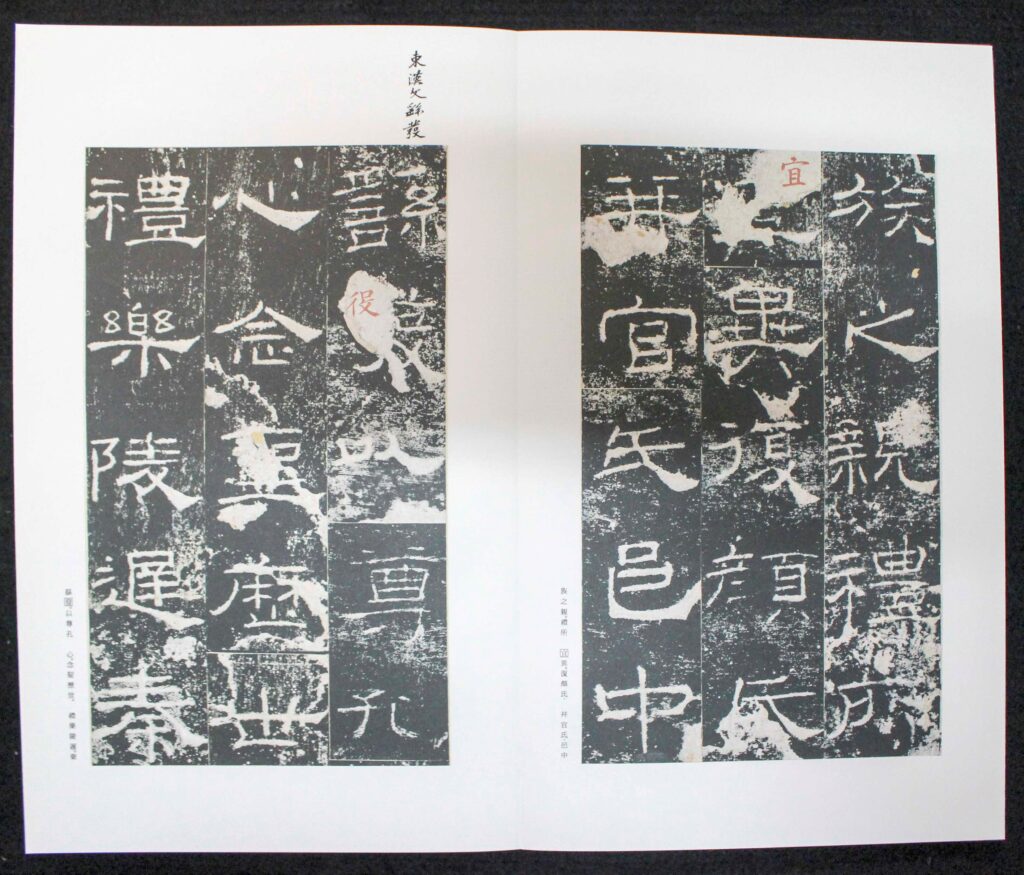 族之親禮所
宜
異復顏氏
并官氏邑中
族之親。禮所　宜異。復顏氏　并官氏邑中
東漢文繇發
繇
役
以尊孔
心念聖歷世
禮樂陵遲秦
繇役以尊孔　心。念聖歷世。　禮樂陵遲。秦